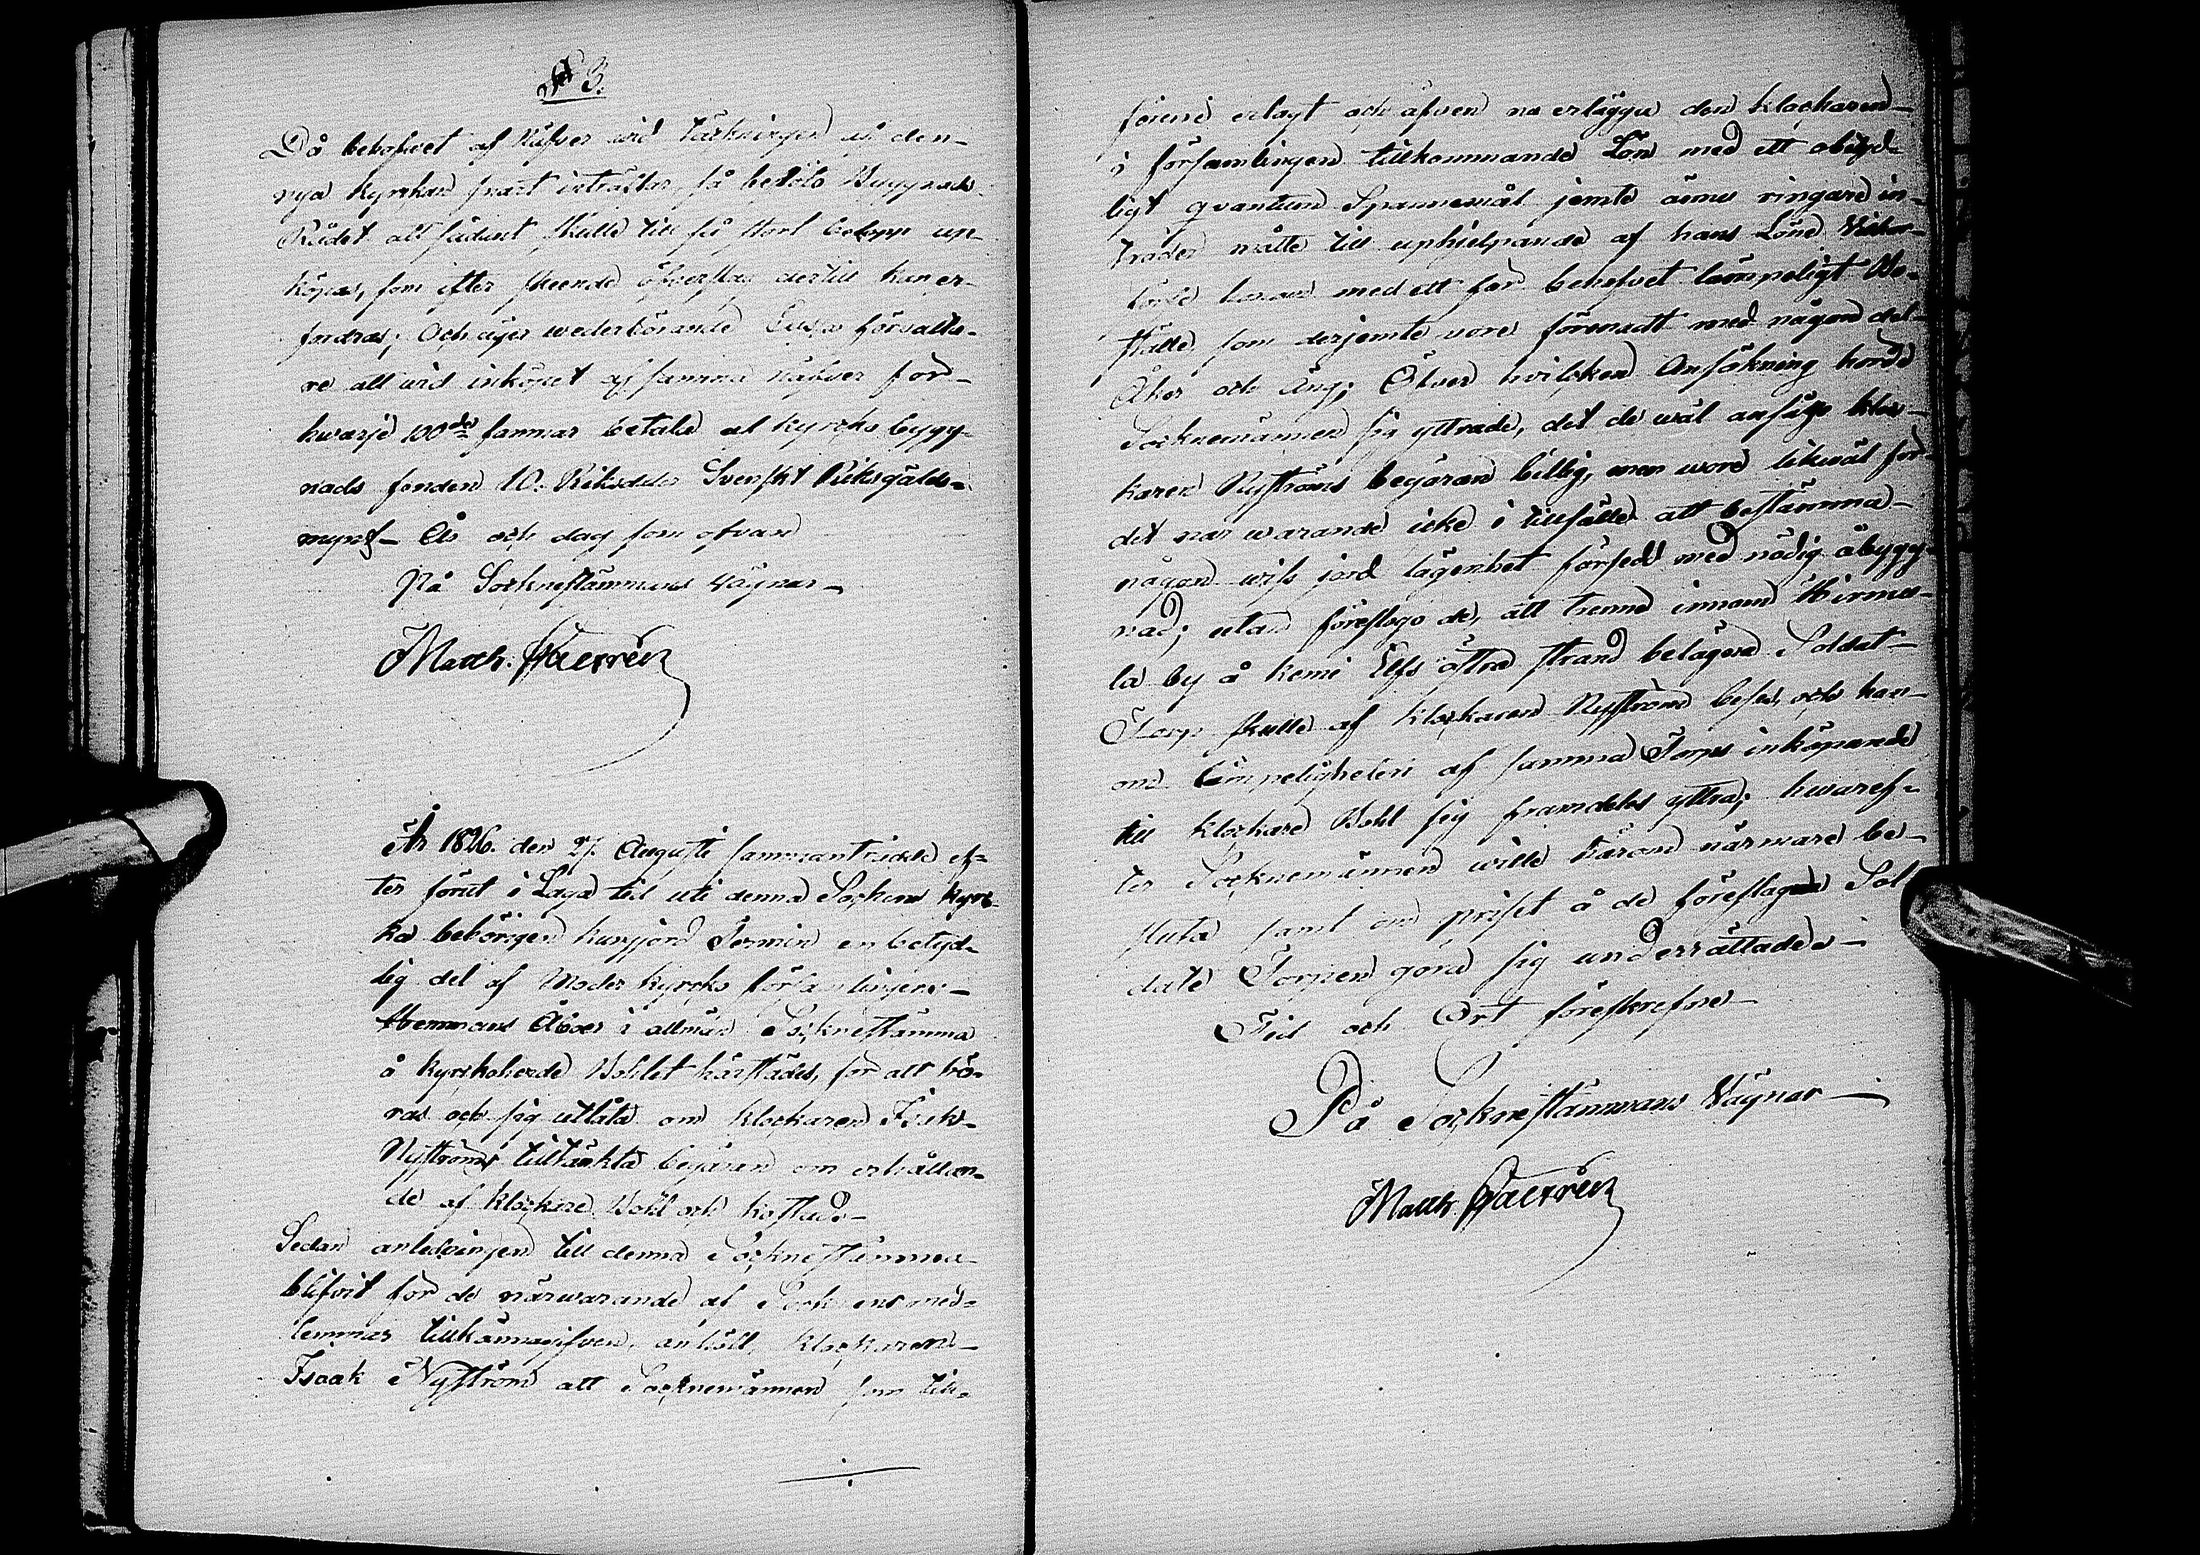 § 3.
Då behofwet af Näfwer wid täckningen af den
nya kyrckan snart inträffar, så beslöts Byggnads
Rådet att sådant skulle till så stort belopp up-
köpas, som efter skeende öfwerslag dertill kan er-
fordras; Och äger wederbörande
re att wid inköpet af samma näfwer för
hwarje 100de famnar betala af kyrcko bygg-
nads fonden 10. Riksdaler Svenskt Riksgälds-
mynt – År och dag som ofvan
På Sockneståmmans vägnar –
Matth.
År 1826. den 27. Augusti sammanträdde ef-
ter förut i Laga tid uti denna Socknens kyrc-
ka behörigen kungjord Termin en betyd-
lig del af Moder kyrcko församlingens
Hemmans Åboer i allmän Socknestämma
å kyrkoherde Bohlet härstädes, för att hö-
ras och sig utlåta om klockaren Isak
Nyströms tilltänkta begäran om erhållan-
de af klockare Bohl och kostnad
Sedan anledningen till denna Socknestämma
blifvit för de närwarande af Socknens med-
lemmar tillkännagifven, anhöll klockaren
Isaak Nyström att Socknemännen som till-
förene erlagt och äfven nu erlägga den klockaren
i församlingen tillkommande Lön med ett obetyd-
ligt qvantum Spannemål jemte ännu ringare in-
träder måtte till uphjelpande af hans Löne
med ett för behofvet lämpeligt Bo-
ställe som derjemte vore förenadt med någon del
Åker och äng; Öfver hvilcken Ansökning hörde
Socknemännen sig yttrade, det de wäl ansågo kloc-
karen Nyströms begäran billig, men wore likwäl för
det närwarande icke i tillfälle att bestämma
någon wiss jord lägenhet försedd med nödig åbygg-
nad; utan föreslogo de, att trenne innom Hirmu-
la by å kemi Elfs östra strand belägna Soldat
Torp skulle af klockaren Nyström beses, och han
om lämpeligheten af samma Torps inköpande
till klockare Bohl sig framdeles yttra; hwaref-
ter Socknemännen wille härom närmare be-
sluta samt om priset å de föreslagna Sol-
date Torpen göra sig underrättade –
Tid och Ort föreskrefne –
På Socknestämmans Vägnar –
Matth.